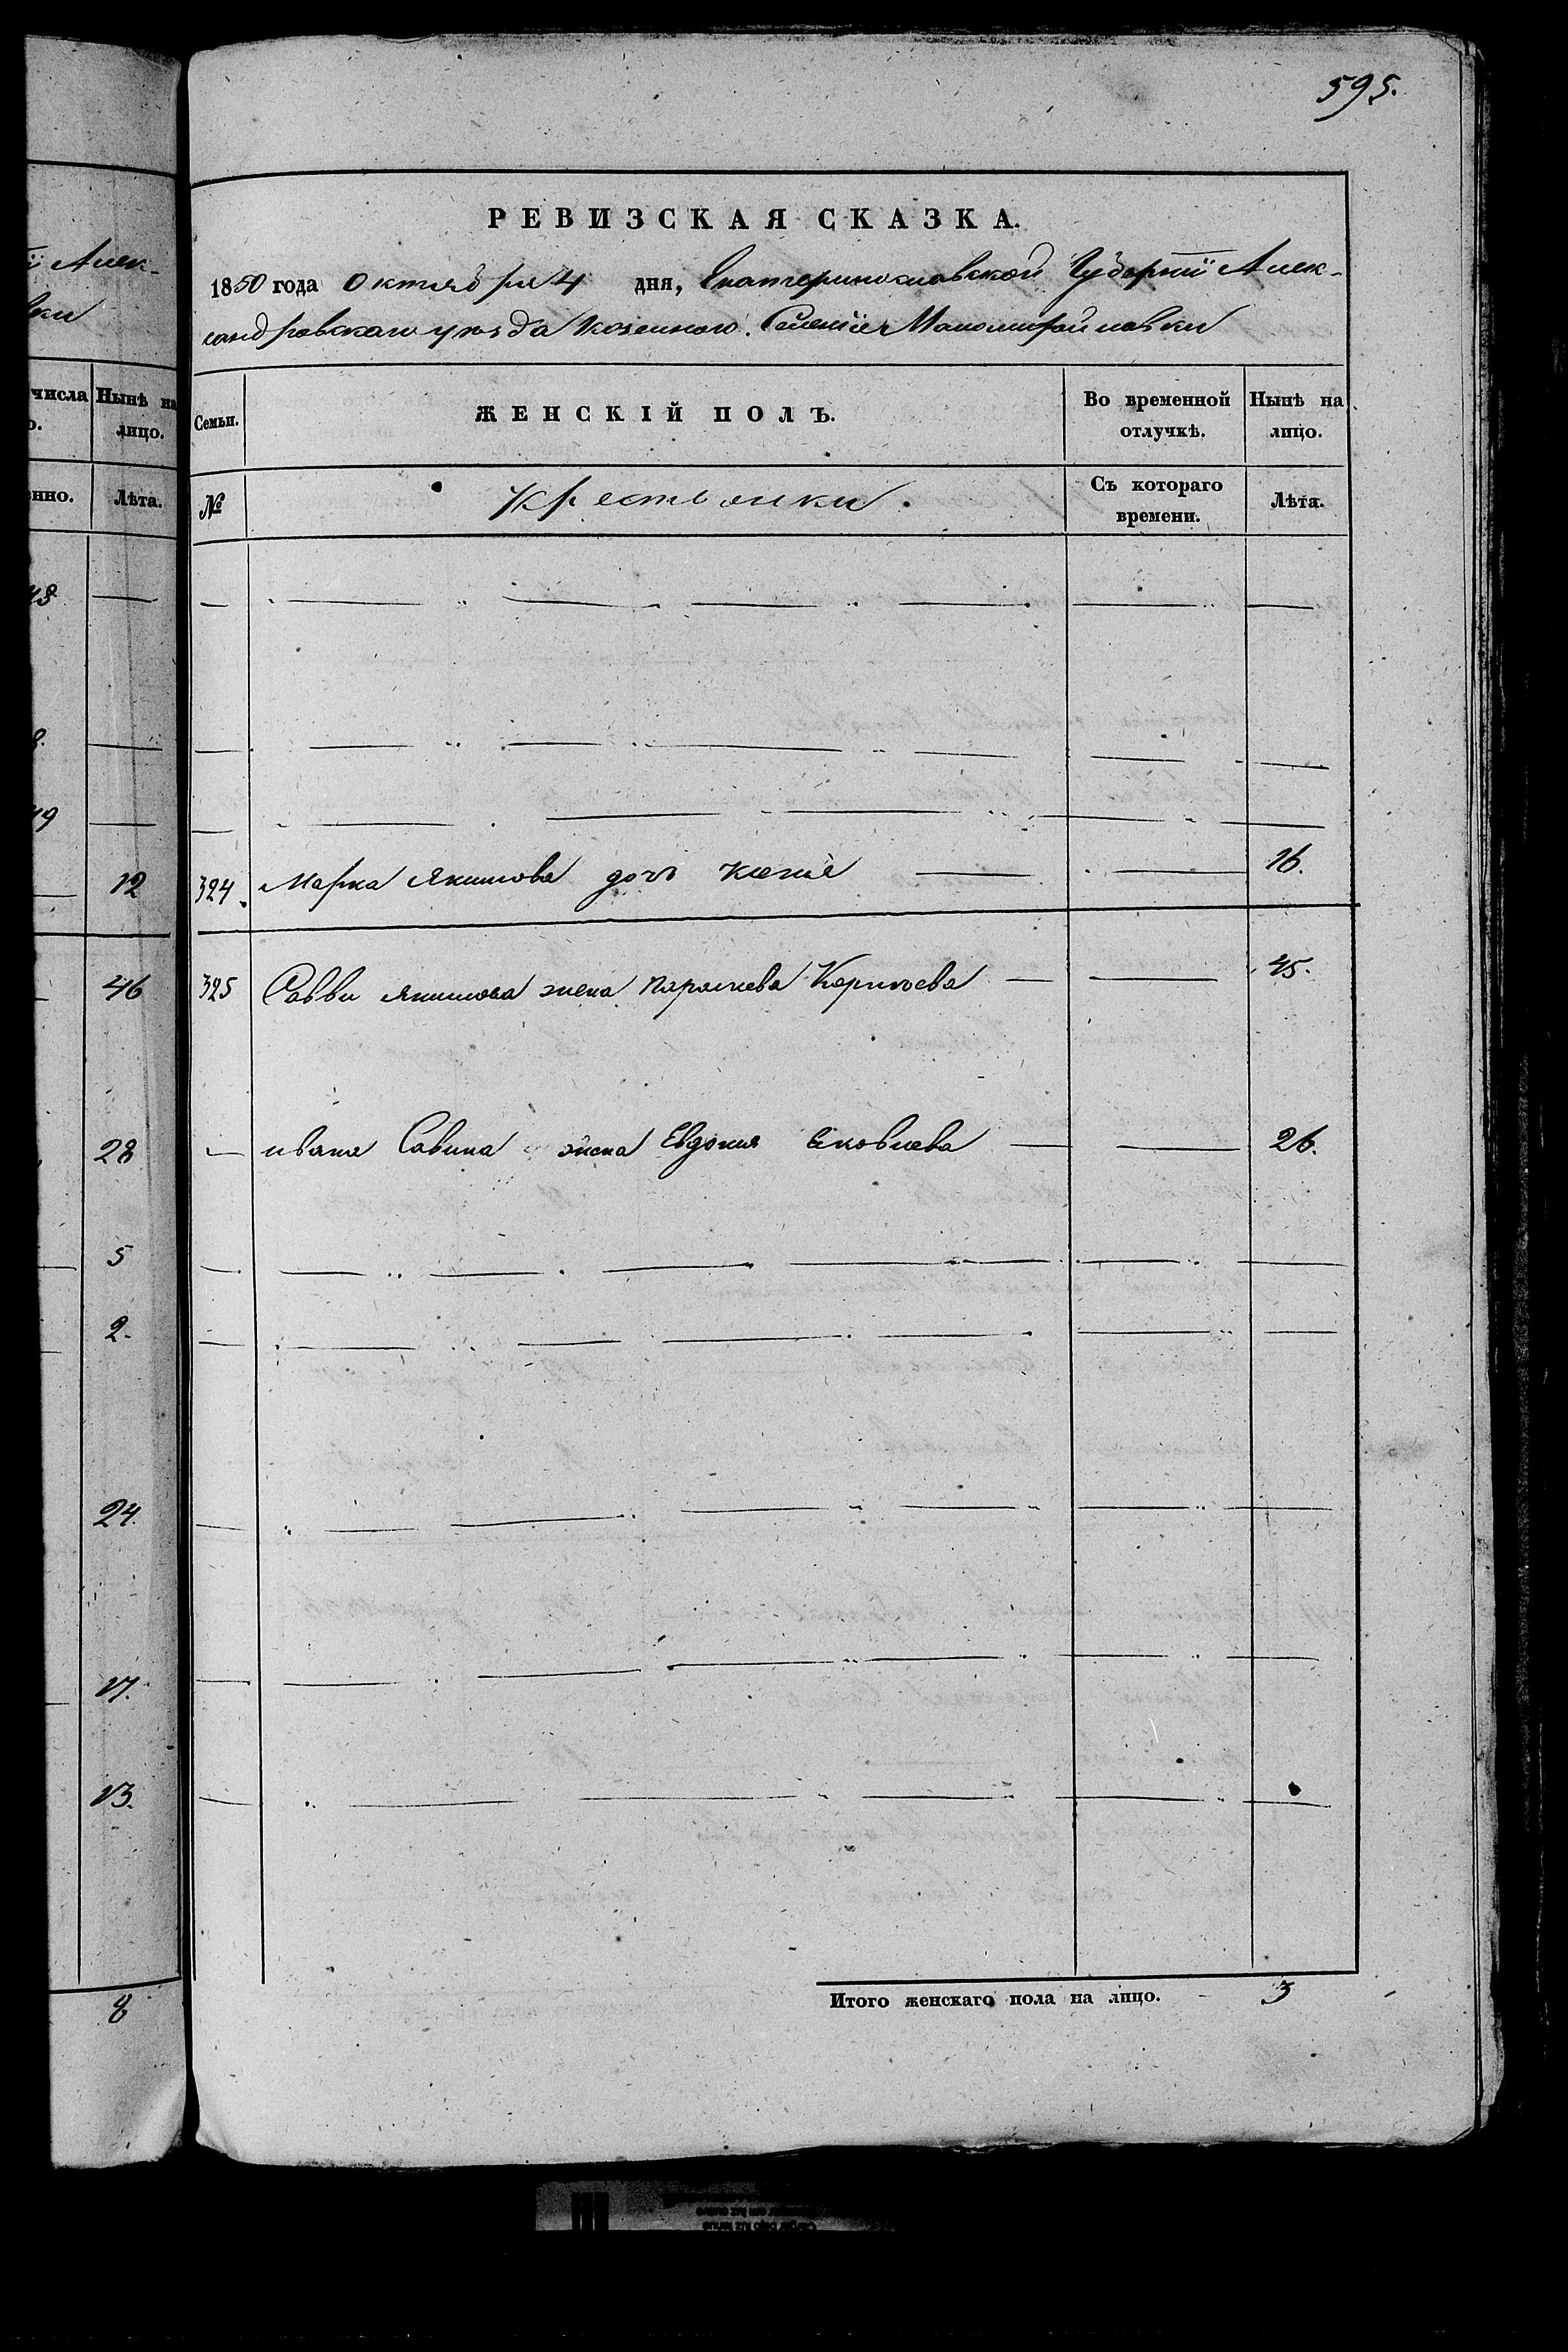 595.
й Алек-
вки
числа Нынѣ на
о. лицо.
нно. Лѣта.
48
8.
49
12
46
28
5
2.
24.
17.
13.
8
РЕВИЗСКАЯ СКАЗКА.
1850 года Октября 4 дня, Екатеринославской Губернїи Алек-
сандровскаго уѣзда Козенного Селенїя
Семьи. ЖЕНСКІЙ ПОЛЪ. Во временной отлучкѣ. Нынѣ на лицо.
№ Крестьянки. Съ котораго времени. Лѣта.
324. Марка Якимова дочь 16.
325 Савви Якимова жена Параскева 45.
— ивана Савина жена Евдокия Яковлева 26.
Итого женскаго пола на лицо. 3